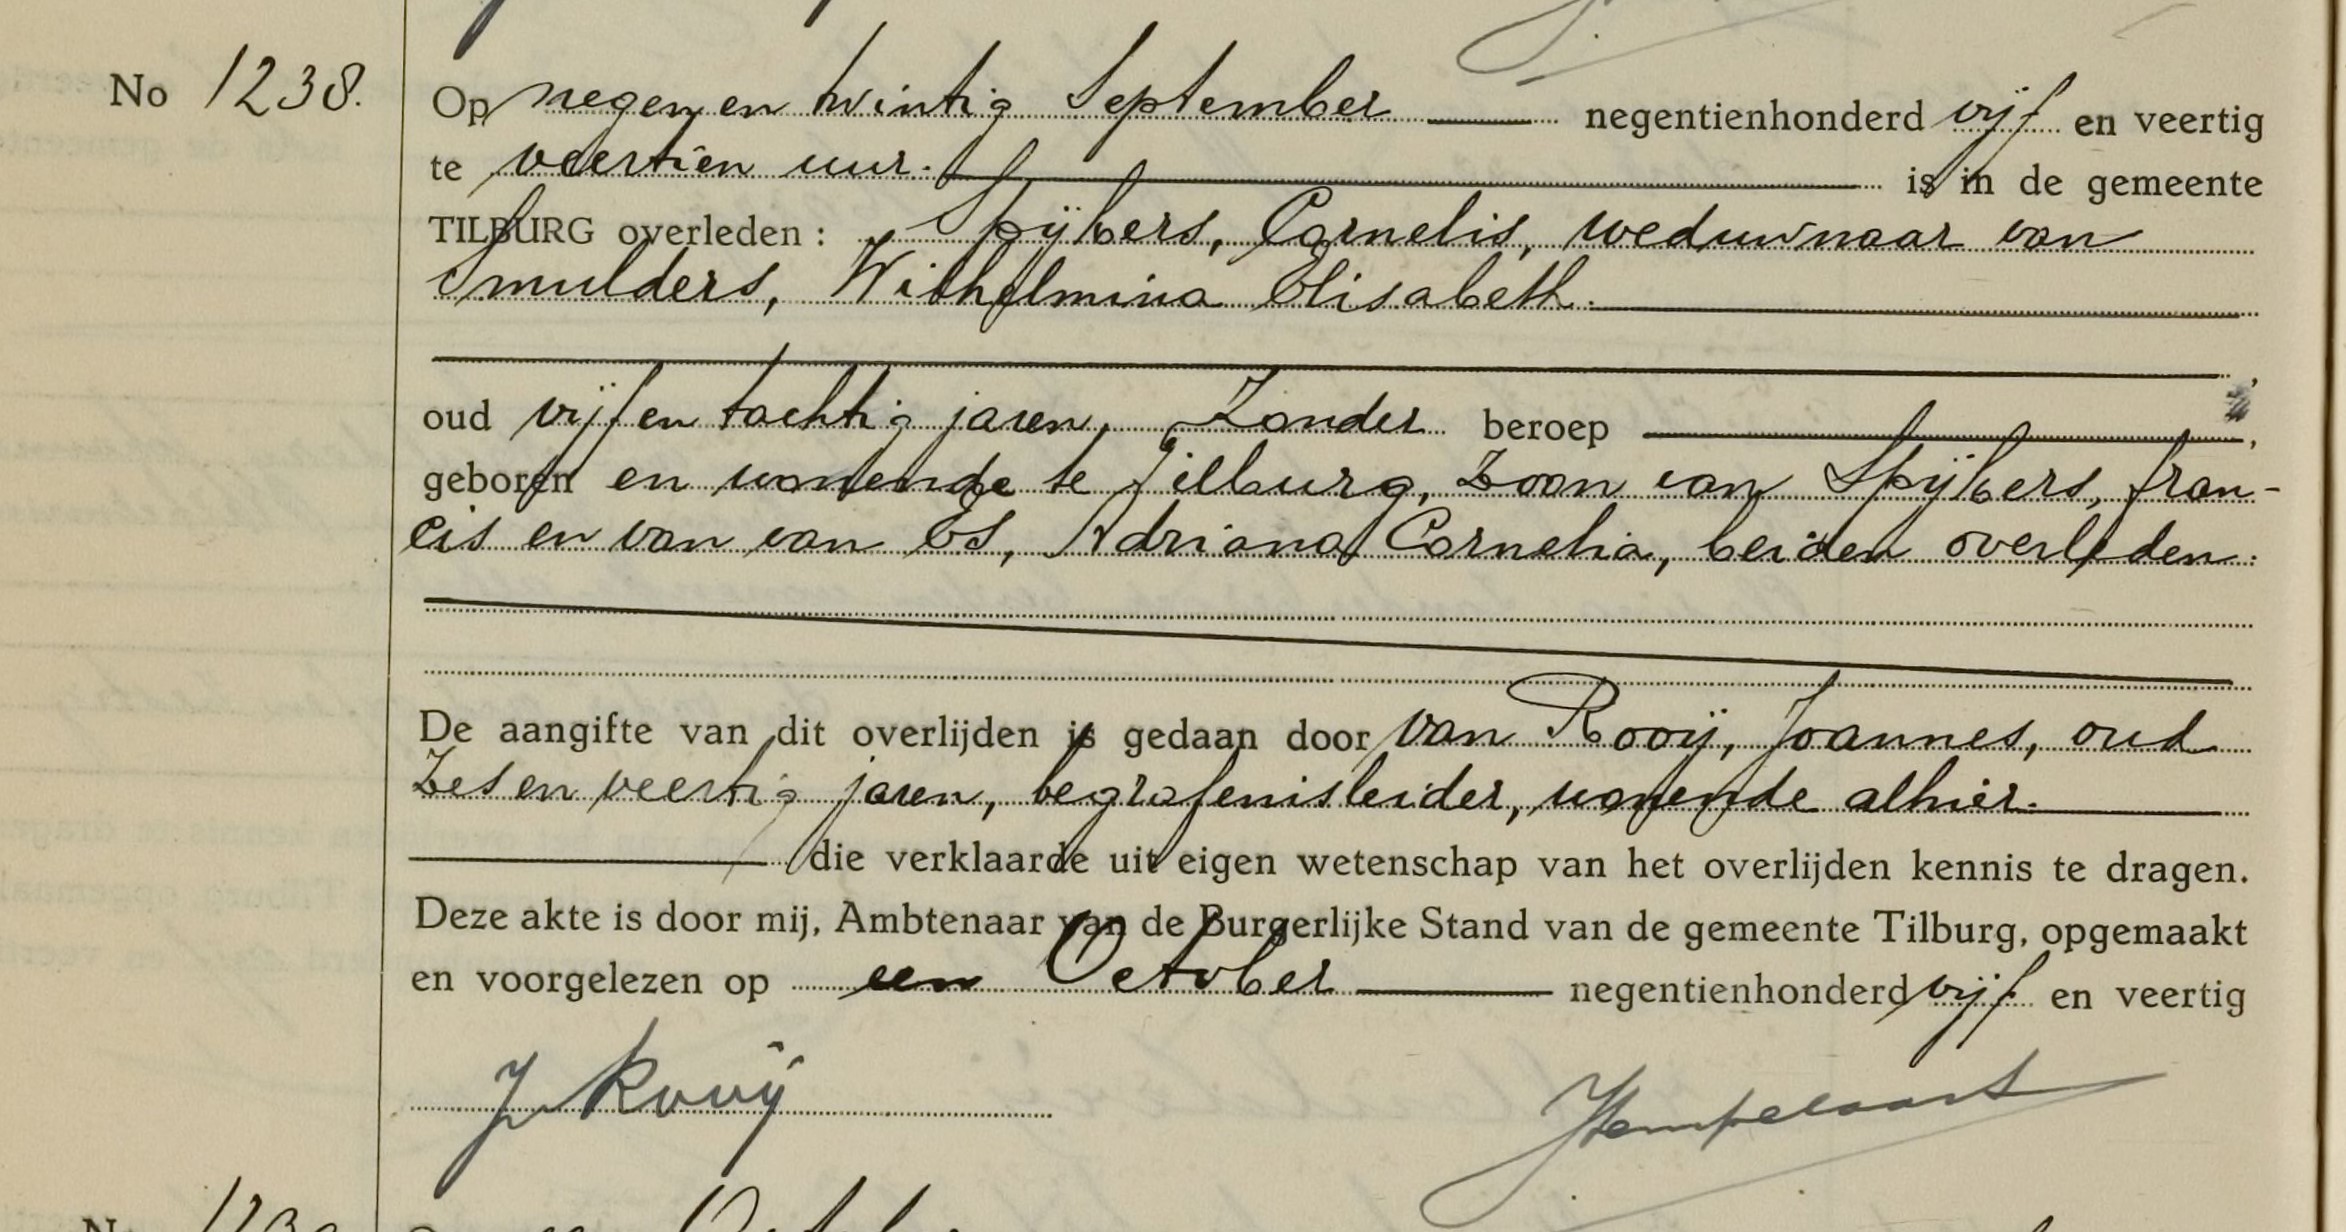 No 1238.
Op negen en twintig September negentienhonderd vijf en veertig
te veertien uur. is in de gemeente
TILBURG overleden : Spijkers, Cornelis, weduwnaar van
Smulders, Wilhelmina Elisabeth.
oud vijf en tachtig jaren, Zonder beroep ,
geboren en wonende te Tilburg, zoon van Spijkers, fran-
cis en van van Es, Adriana Cornelia, beiden overleden.
De aangifte van dit overlijden is gedaan door van Rooij, Joannes, oud
Zes en veertig jaren, begrafenisleider, wonende alhier.
die verklaarde uit eigen wetenschap van het overlijden kennis te dragen.
Deze akte is door mij, Ambtenaar van de Burgerlijke Stand van de gemeente Tilburg, opgemaakt
en voorgelezen op een October negentienhonderd vijf en veertig
J v Rooij